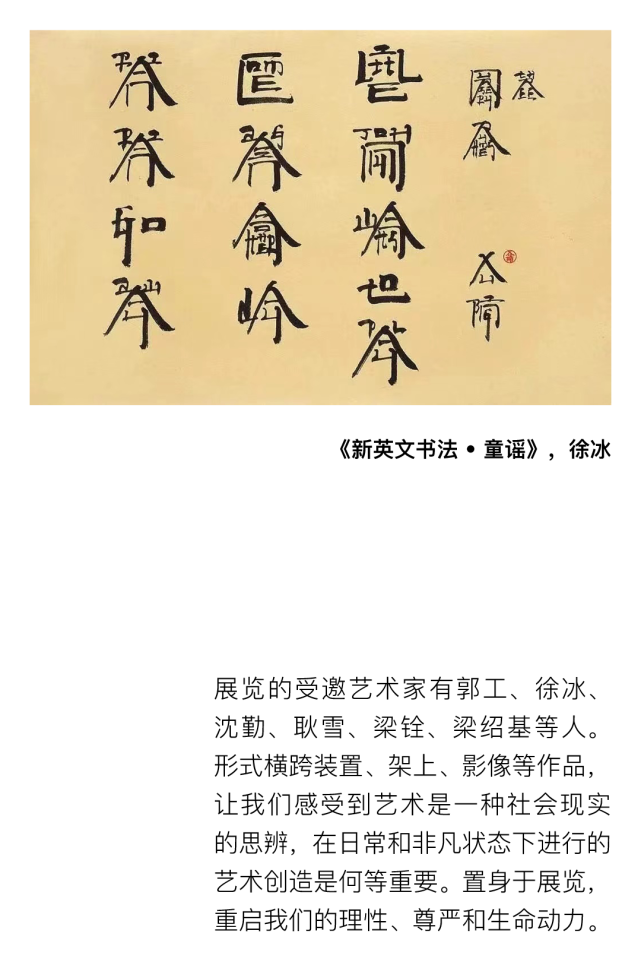 《新英文书法 • 童谣》，徐冰
展览的受邀艺术家有郭工、徐冰、
沈勤、耿雪、梁铨、梁绍基等人。
形式横跨装置、架上、影像等作品，
让我们感受到艺术是一种社会现实
的思辨，在日常和非凡状态下进行的
艺术创造是何等重要。置身于展览，
重启我们的理性、尊严和生命动力。